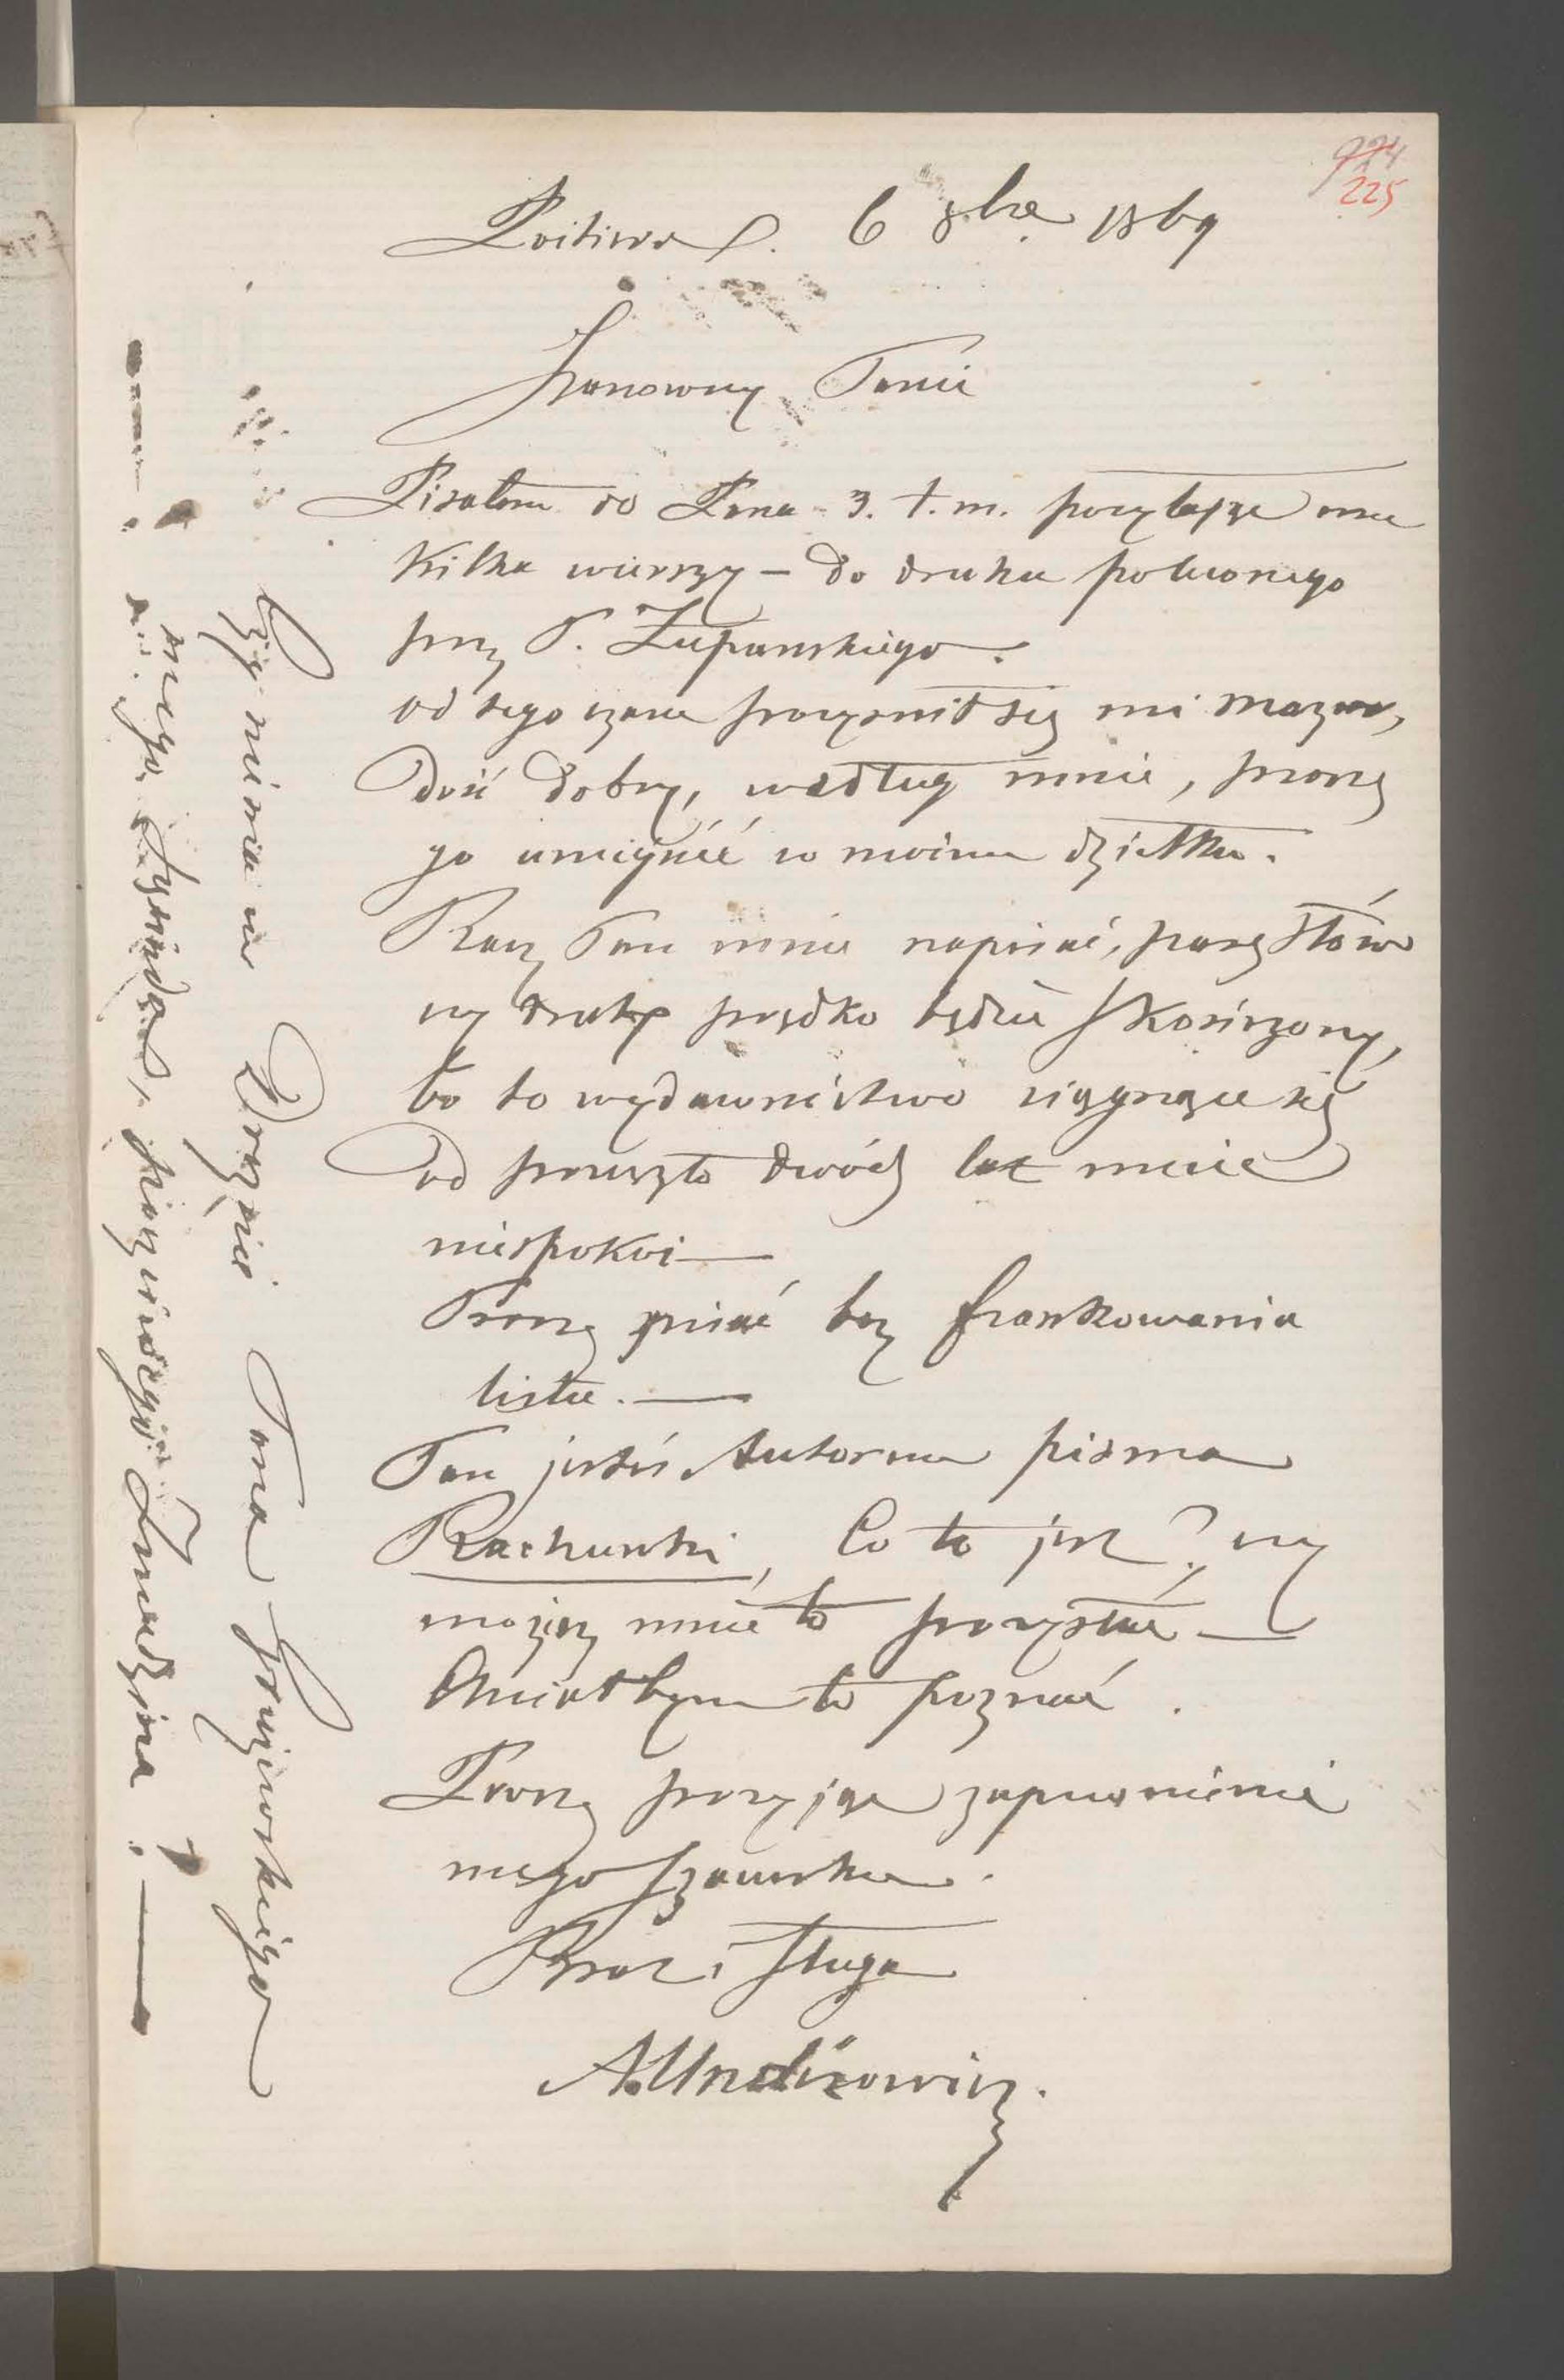 224
225
Poitiers. 6 8bre 1869
Szanowny Panie
Pisałem do Pana 3. t. m. posyłając mu
Kilka wierszy – do druku poleconego
przez P. Żupańskiego.
od tego czasu przyśnił się mi Mazur,
Dość dobry, według mnie, proszę
go umieścić w moim dziełku.
Racz Pan mnie napisać, parę słów
czy druk prędko będzie skończony,
bo to wydawnictwo ciągnące się
od przeszło dwóch lat mnie
niespokoi —
Proszę pisać bez frankowania
listu. —
Pan jesteś Autorem pisma
Rachunki, Co to jest? czy
możesz mnie to przysłać —
Chciałbym to poznać.
Proszę przyjąć zapewnienie
mego szacunku.
Brat i Sługa
A.
Czy niema w Dreznie Pana
mego Sąsiada,